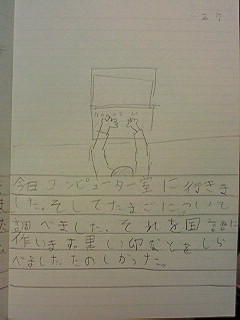 今日コンピューター室に行きま
した。そしてたまごについて
調べました。それを国語に
作います。黒い卵などをしら
べました。たのしかった。